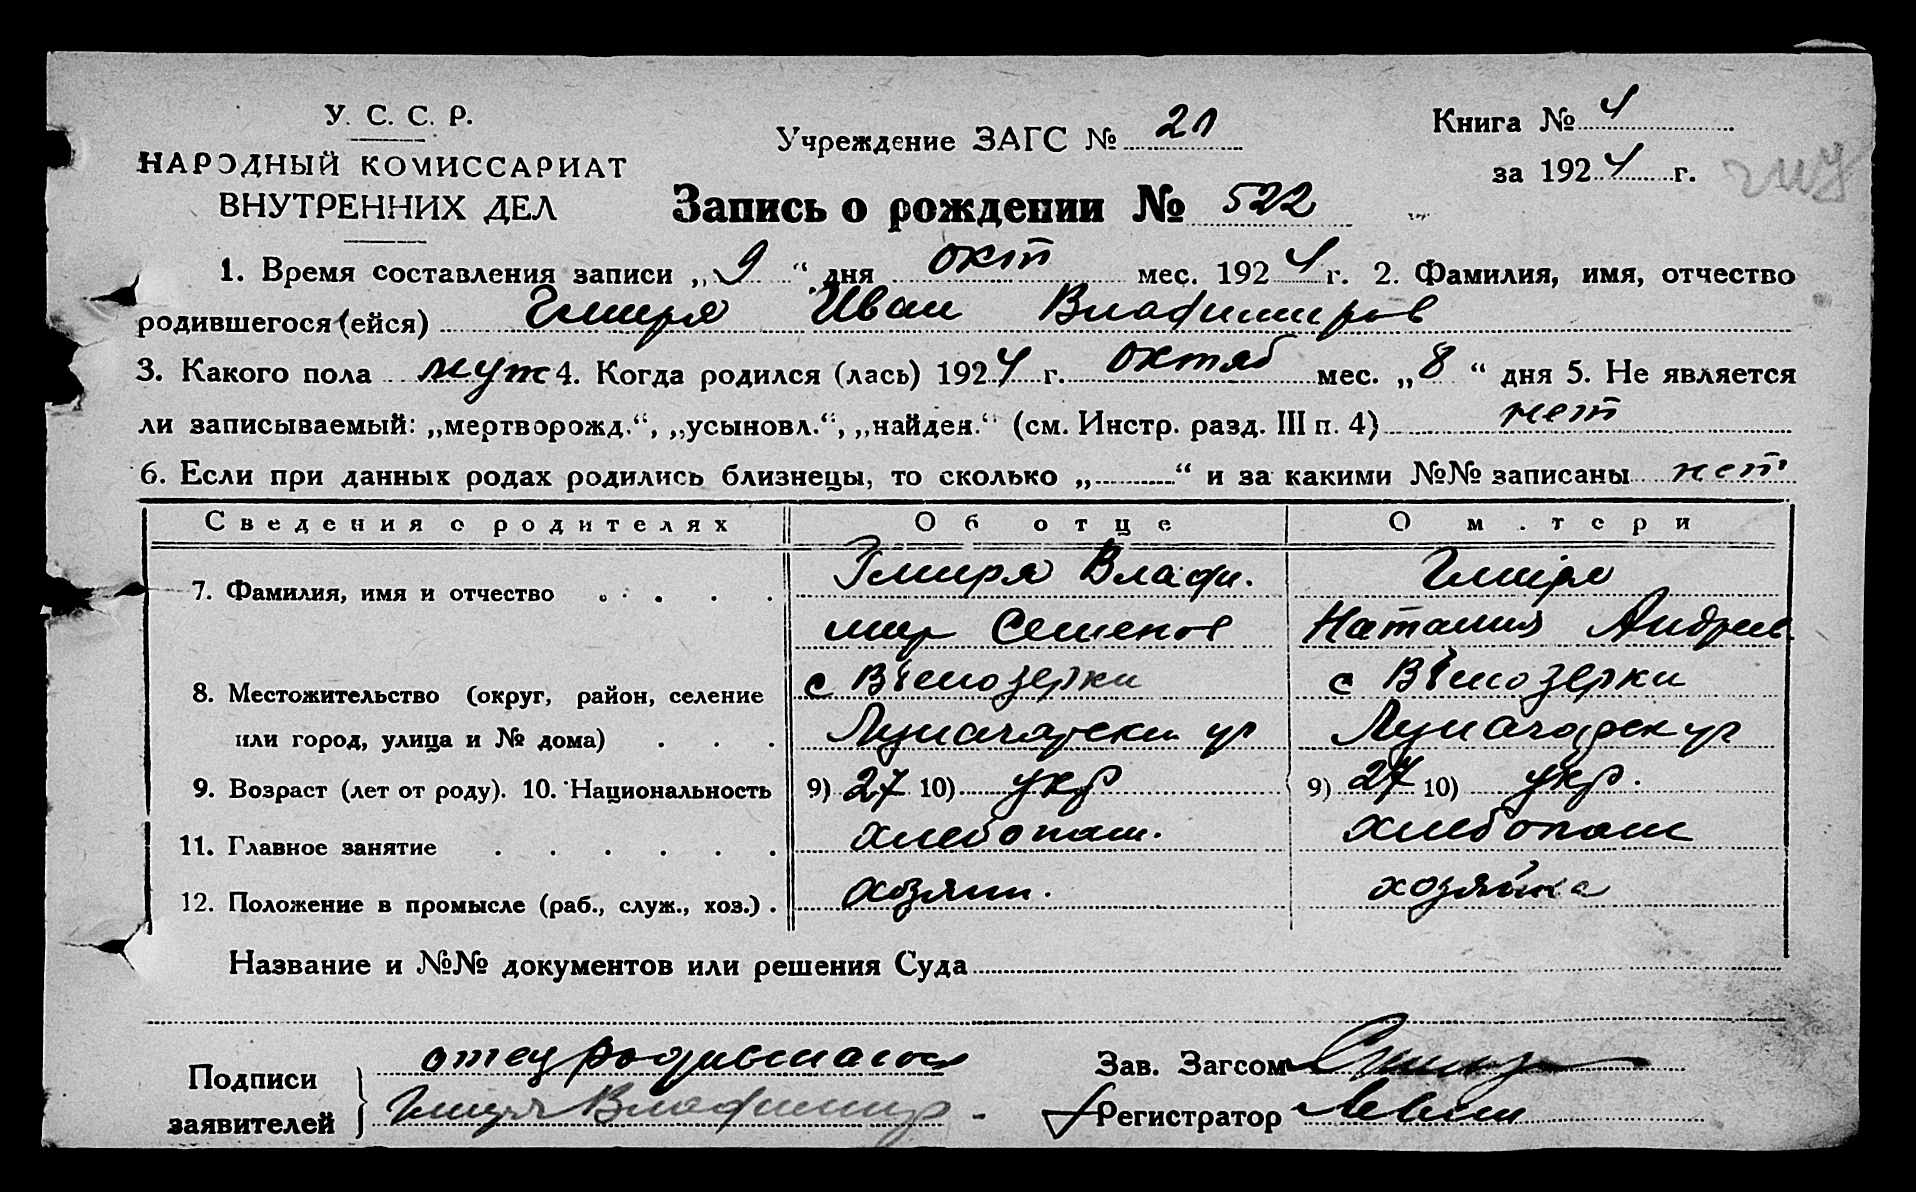 У. С. С. Р.
НАРОДНЫЙ КОМИССАРИАТ
ВНУТРЕННИХ ДЕЛ
Учреждение ЗАГС №
Книга № 4
за 1924 г.
Запись о рождении № 522
1. Время составления записи „9“ дня окт мес. 1924 г. 2. Фамилия, имя, отчество
родившегося (ейся) Гмиря Иван Владимиров
3. Какого пола муж 4. Когда родился (лась) 1924 г. октяб мес. „8“ дня 5. Не является
ли записываемый: „мертворожд.“, „усыновл.“, „найден.“ (см. Инстр. разд. III п. 4) нет
6. Если при данных родах родились близнецы, то сколько „ “ и за какими №№ записаны нет
Сведения о родителях Об отце О матери
7. Фамилия, имя и отчество Гмиря Влади- Гмиря
мир Семенов Наталия Андреев
8. Местожительство (округ, район, селение с Білозерки с Білозерки
или город, улица и № дома)
9. Возраст (лет от роду). 10. Национальность 9) 27 10) укр 9) 27 10) укр.
11. Главное занятие хлебопаш. хлебопаш
12. Положение в промысле (раб., служ., хоз.) хозяин. хозяйка
Название и №№ документов или решения Суда
Подписи
заявителей
отец
Гмиря Владимир
Зав. Загсом
Регистратор